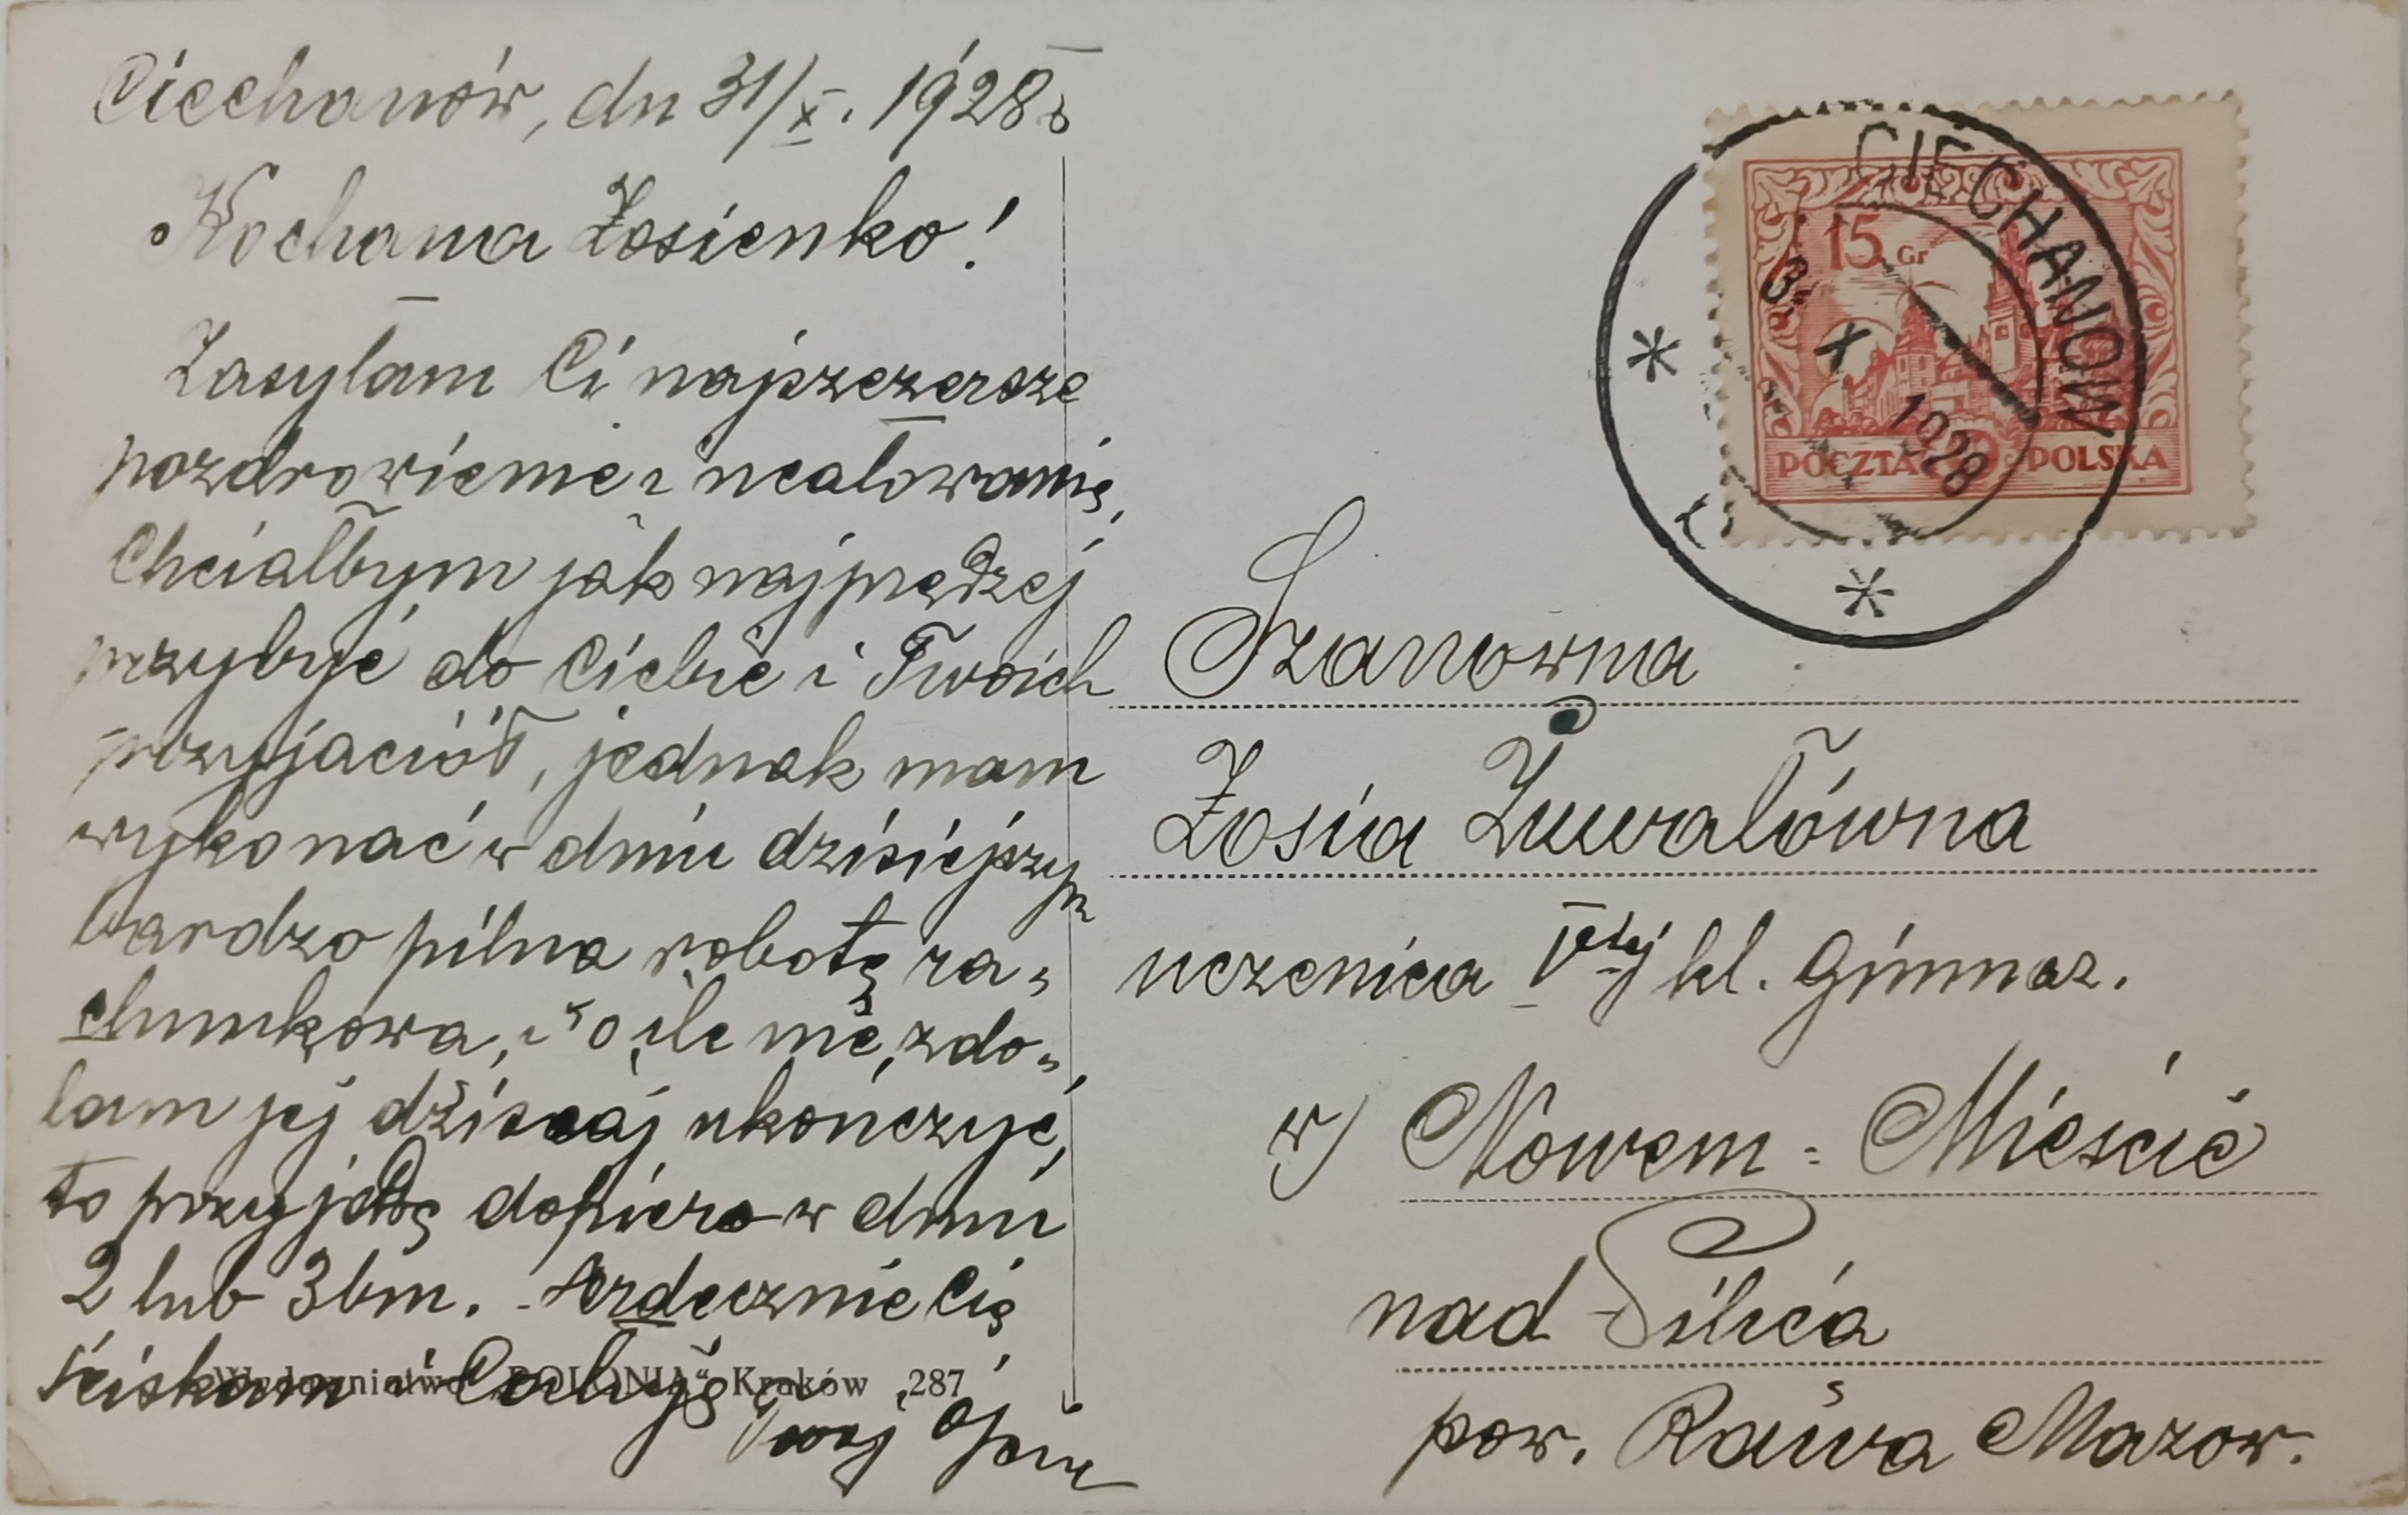 Ciechanów, dn 31/X. 1928 r
Kochana Zosieńko!
Zasyłam Ci najszczersze
pozdrowienie i ucałowanie,
Chciałbym jak najprędzej
przybyć do Ciebie i Twoich
przyjaciół, jednak mam
wykonać w dniu dzisiejszym
bardzo pilną robotę ra-
chunkową, i o ile nie zdo-
łam jej dzisiaj ukończyć,
to przyjadę dopiero w dniu
2 lub 3 bm. Serdecznie Cię
ściskam i całuję
Twój Ojciec
Wydawnictwo „POLONIA" Kraków 287
CIECHANÓW
X 1928
15 Gr
POCZTA POLSKA
Szanowna
Zosia Żuwałówna
uczenica V-tej kl. Gimnaz.
w Nowem-Mieście
nad Pilicą
pow. Rawa Mazow.